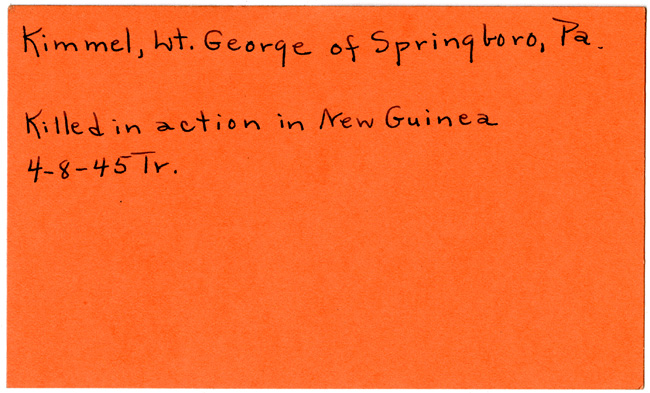 Kimmel, Lt. George of Springboro, Pa.
Killed in action in New Guinea
4-8-45 Tr.